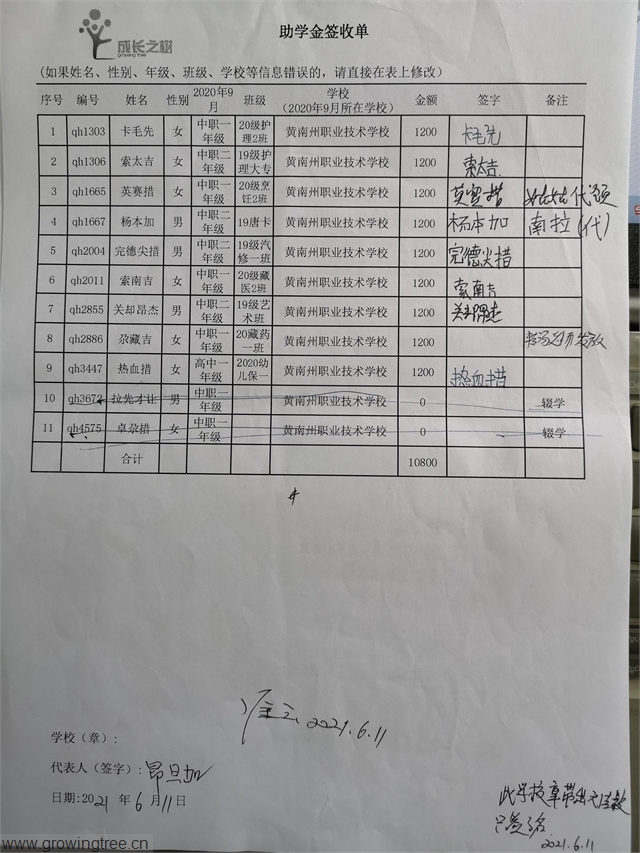 成长之树
growing tree
助学金签收单
(如果姓名、性别、年级、班级、学校等信息错误的，请直接在表上修改)
序号 编号 姓名 性别 2020年9月 班级 学校（2020年9月所在学校） 金额 签字 备注
1 qh1303 卡毛先 女 中职一年级 20级护理2班 黄南州职业技术学校 1200 卡毛先
2 qh1306 索太吉 女 中职二年级 19级护理大专 黄南州职业技术学校 1200 索太吉
3 qh1665 英赛措 女 中职一年级 20级烹饪2班 黄南州职业技术学校 1200 英赛措 代领
4 qh1667 杨本加 男 中职二年级 19唐卡 黄南州职业技术学校 1200 杨本加 南拉(代)
5 qh2004 完德尖措 男 中职二年级 19级汽修一班 黄南州职业技术学校 1200 完德尖措
6 qh2011 索南吉 女 中职一年级 20级藏医2班 黄南州职业技术学校 1200 索南吉
7 qh2855 关却昂杰 男 中职二年级 19级艺术班 黄南州职业技术学校 1200 关却昂杰
8 qh2886 尕藏吉 女 中职一年级 20藏药一班 黄南州职业技术学校 1200
9 qh3447 热血措 女 高中一年级 2020幼儿保一 黄南州职业技术学校 1200 热血措
10 qh3672 拉先才让 男 中职一年级 黄南州职业技术学校 0 辍学
11 qh4575 卓尕措 女 中职一年级 黄南州职业技术学校 0 辍学
合计 10800
2021.6.11
学校（章）:
代表人（签字）: 昂旦加
日期:2021 年 6 月 11 日
此学校章带出
2021.6.11
www.growingtree.cn